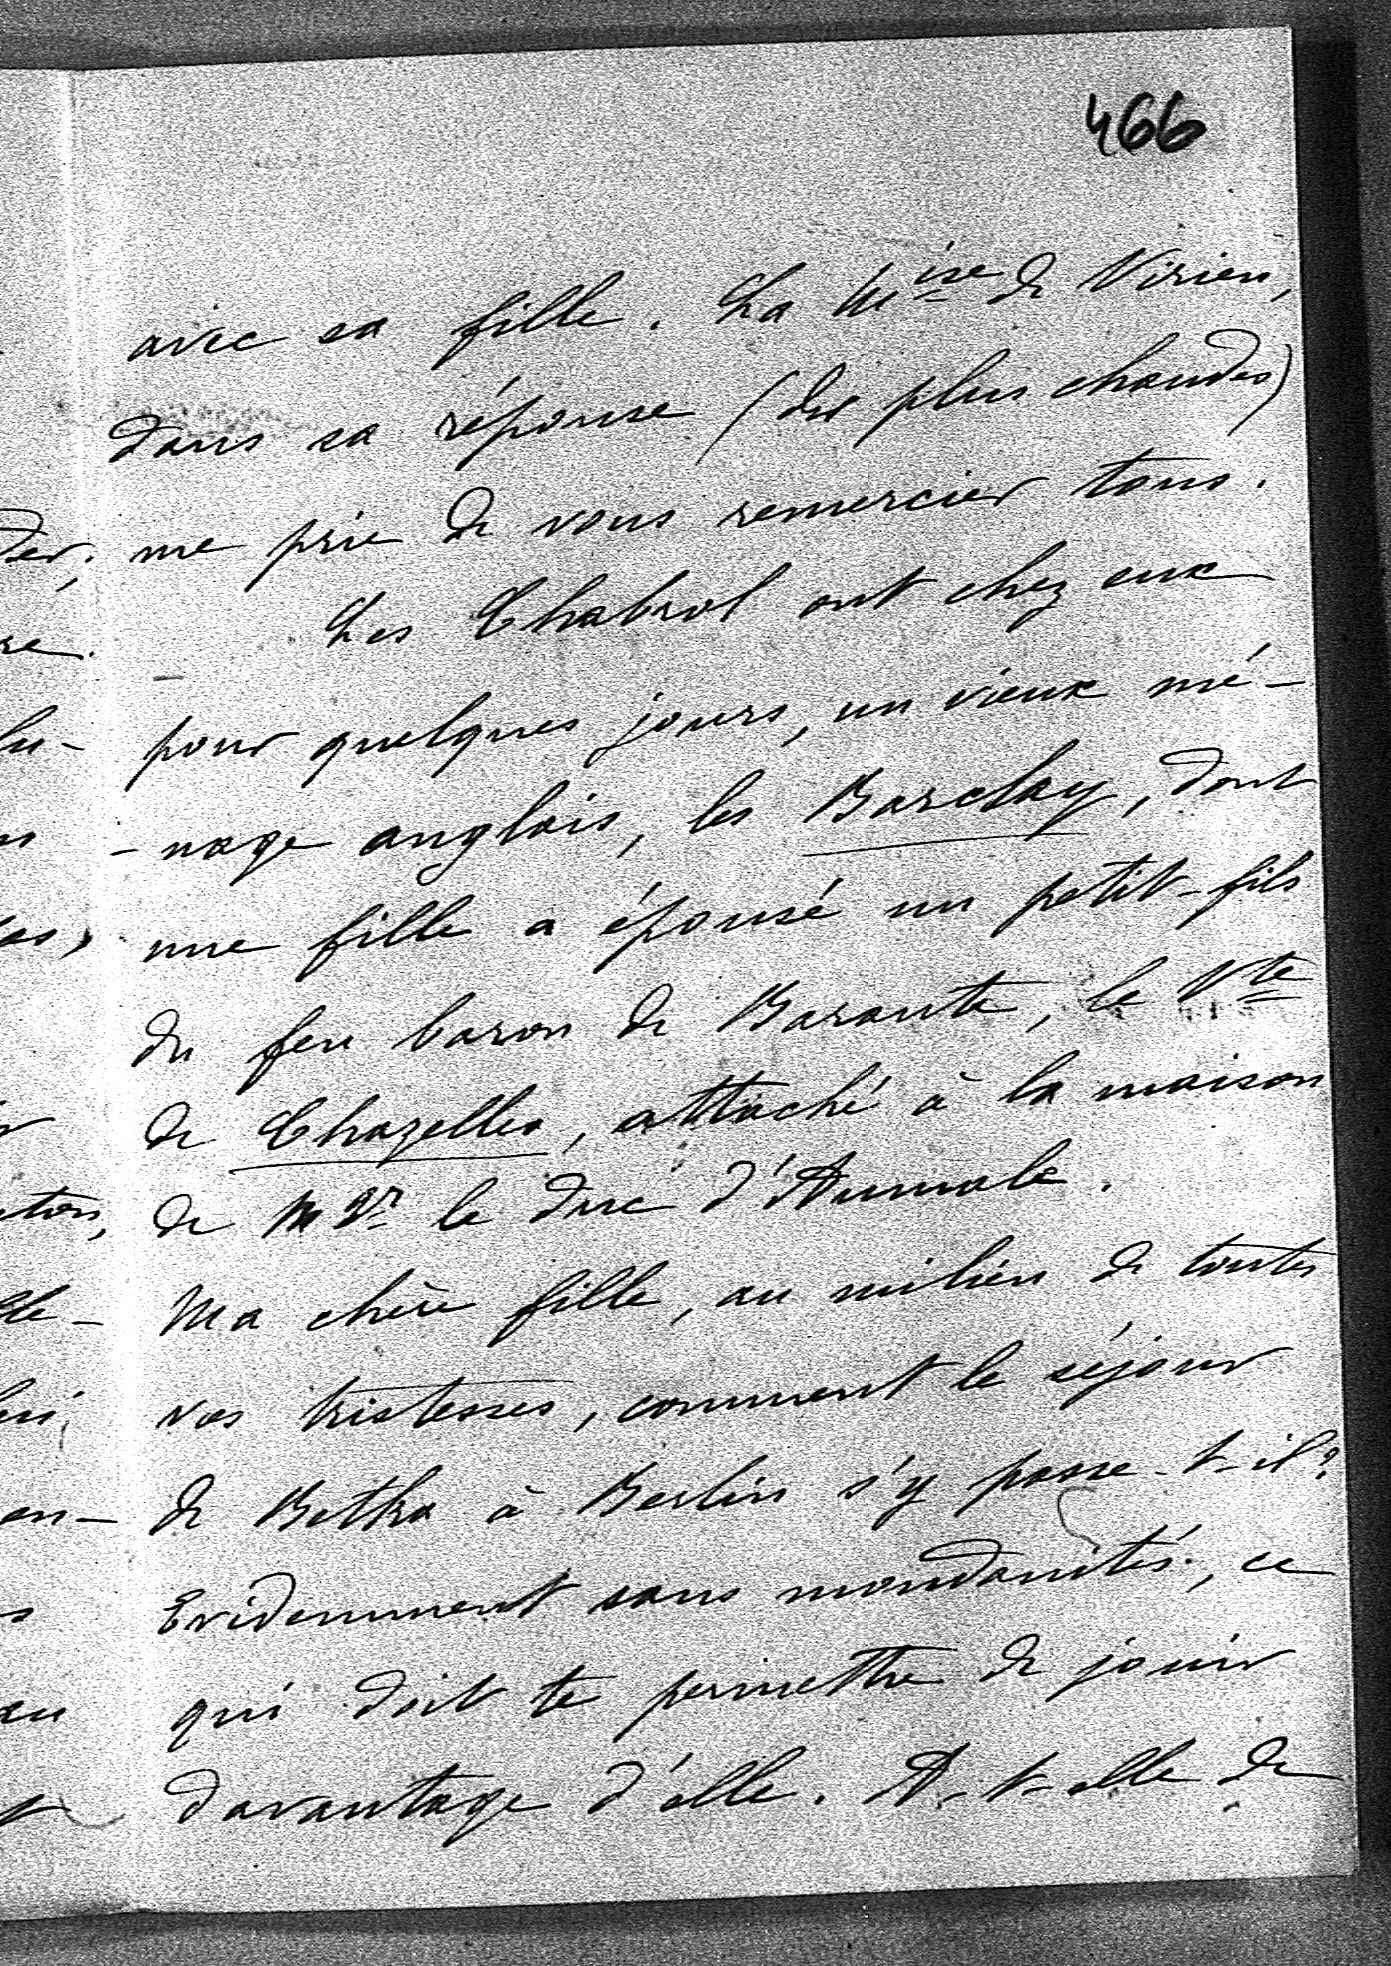 466
avec sa fille. La M^ise de Virieu,
dans sa réponse (des plus chaudes)
me prie de vous remercier tous.
Les Chabrol ont chez eux
pour quelques jours, un vieux mé-
-nage anglais, les Barclay, dont
une fille a épousé un petit-fils
du feu baron de Barante, le V^te
de Chazelles, attaché à la maison
de Mgr le duc d'Aumale.
Ma chère fille, au milieu de toutes
vos tristesses, comment le séjour
de Betka à Berlin s'y passe-t-il?
Evidemment sans mondanités, ce
qui doit te permettre de jouir
davantage d'elle. A-t-elle de